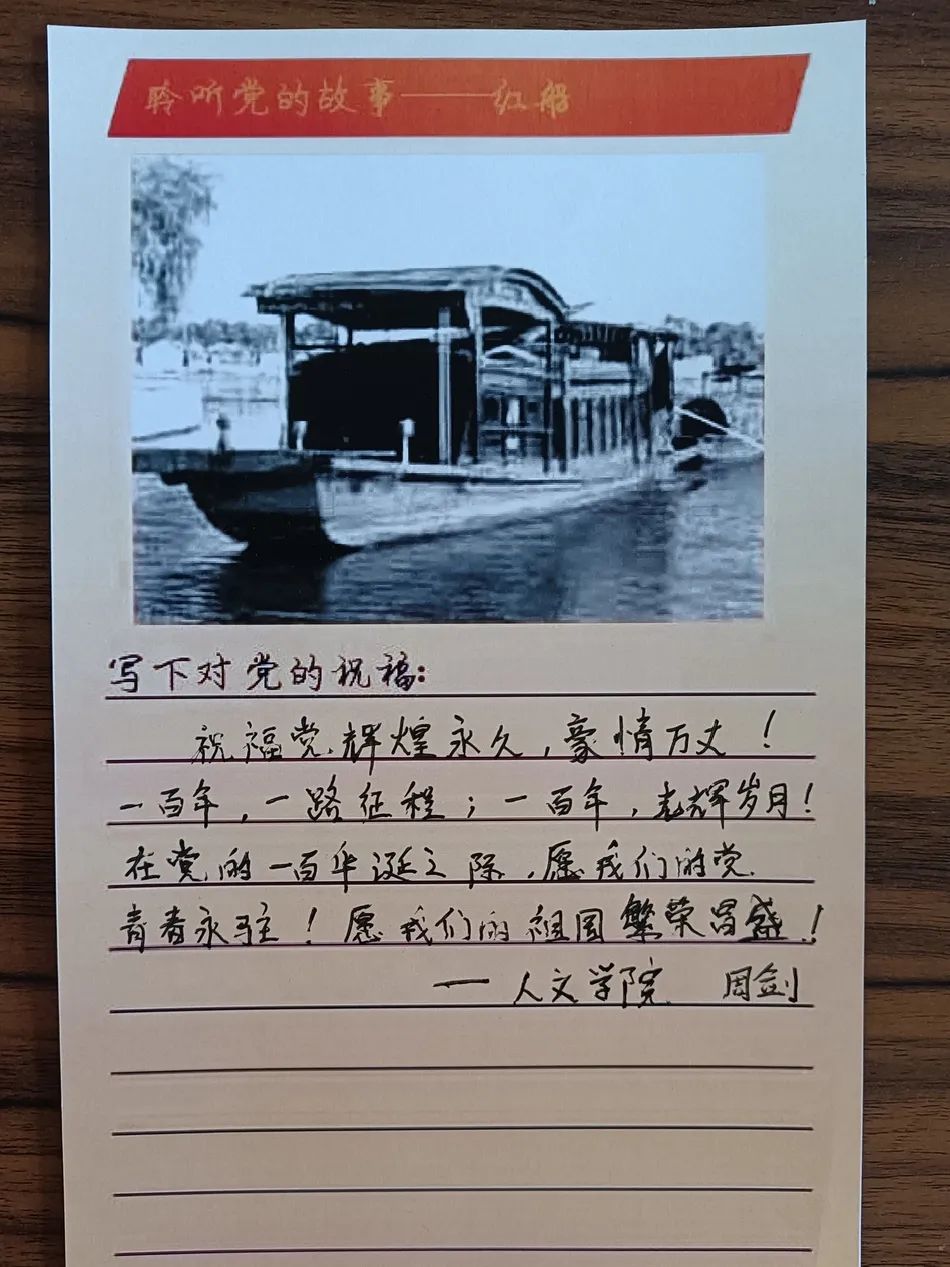 聆听党的故事——红船
写下对党的祝福：
祝福党辉煌永久，豪情万丈！
一百年，一路征程；一百年，光辉岁月！
在党的一百年诞之际，愿我们的党
青春永驻！愿我们的祖国繁荣昌盛！
—人文学院 周剑